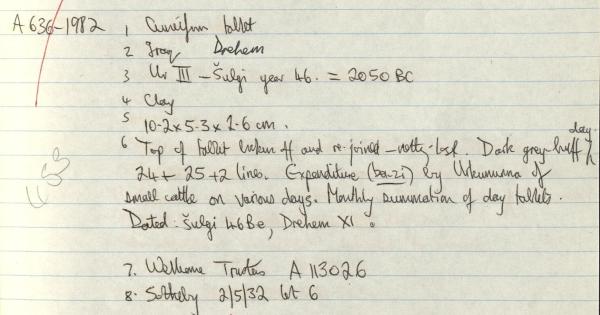 A 636-1982 1 Cuneiform tablet
2 Iraq Drehem
3 Ur III – Šulgi year 46. = 2050 BC
4 Clay
5 10.2 x 5.3 x 2.6 cm.
6 Top of tablet broken off and re-joined – nothing lost. Dark grey-buff day
24 + 25 + 2 lines. Expenditure (ba-zi) by Urkununna of
small cattle on various days. Monthly summation of day tablets.
Dated: Šulgi 46 Be, Drehem XI.
7. Wellcome Trustees A 113026
8. Sotheby 2/5/32 lot 6